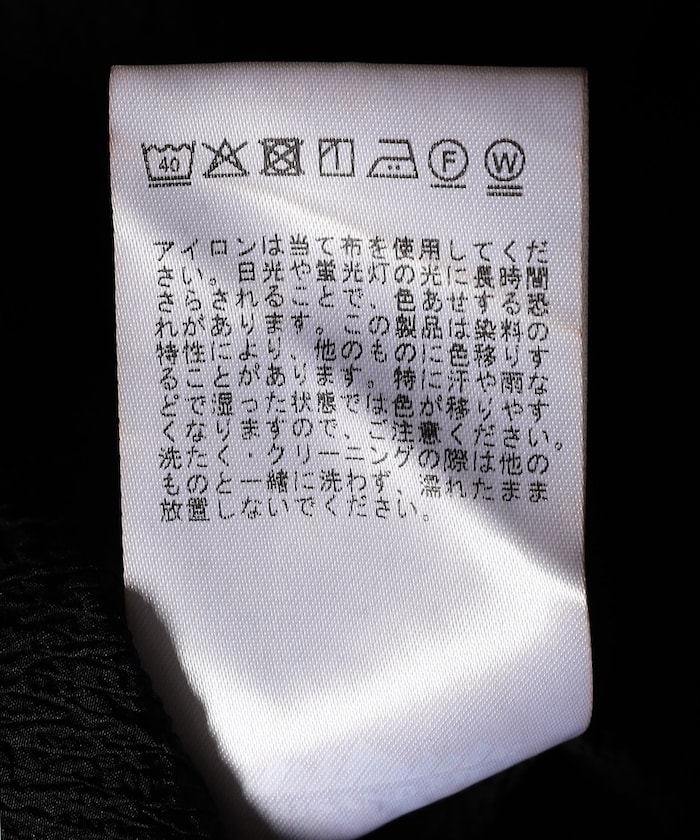 40 F W
アイロンは当て布を使用してくだ
さい。日光や蛍光灯の光に長時間
さらされることで、色あせする恐
れがあります。この製品は染料の
特性により、他のものに色移りす
ることがあります。特に汗や雨な
どで湿った状態では色が移りやす
くなりますので、ご注意ください。
洗たく・クリーニングの際は他の
ものと一緒に洗わず、濡れたまま
放置しないでください。